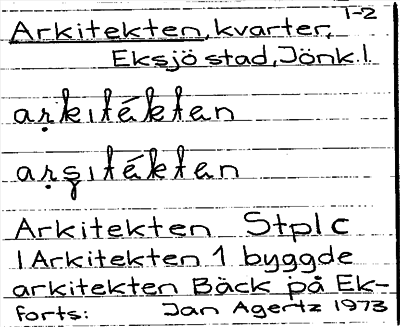 1-2
Arkitekten, kvarter,
Eksjö stad, Jönk.l.
aṛkıtékten
aṛşıtékten
Arkitekten Stpl c
I Arkitekten 1 byggde
arkitekten Bäck på Ek-
forts: Jan Agertz 1973